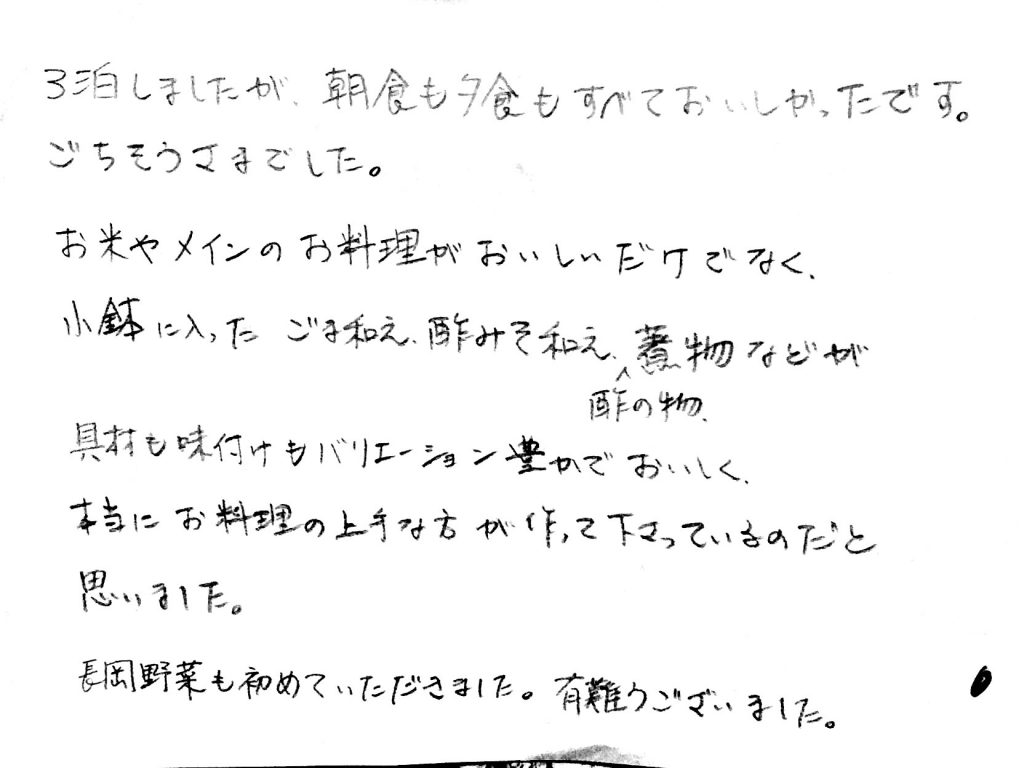 3泊しましたが、朝食も夕食もすべておいしかったです。
ごちそうさまでした。
お米やメインのお料理がおいしいだけでなく、
小鉢に入った ごま和え、酢みそ和え、煮物などが
酢の物、
具材も味付けもバリエーション豊かでおいしく、
本当にお料理の上手な方が作って下さっているのだと
思いました。
長岡野菜も初めていただきました。有難うございました。